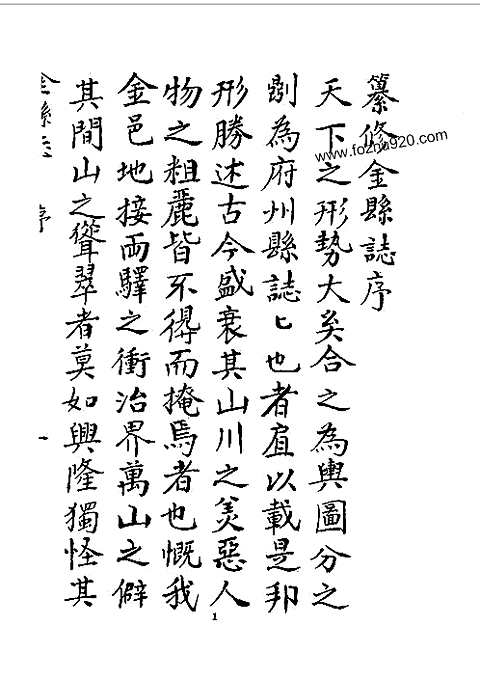 纂修金縣誌序
天下之形勢大矣合之為輿圖分之
則為府州縣誌匕也者直以載是邦
形勝述古今盛衰其山川之美惡人
物之粗麗皆不得而掩焉者也慨我
金邑地接兩驛之衝治界萬山之僻
其間山之聳翠者莫如興隆獨怪其
金縣志 序 一
www.fozhu920.com
1